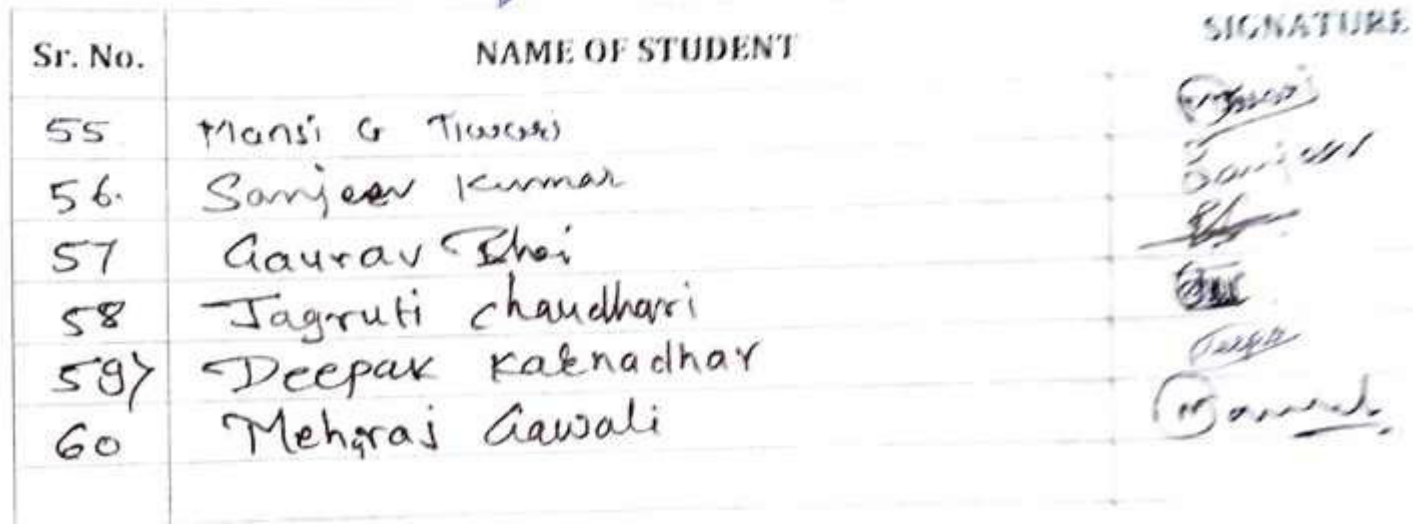 Sr. No. NAME OF STUDENT SIGNATURE
55 Mansi G Tiwari
56. Sanjeev Kumar Sanjeev
57 Gaurav Bhoi
58 Jagruti chaudhari
59) Deepak Kaknadhar
60 Mehraj Gawali